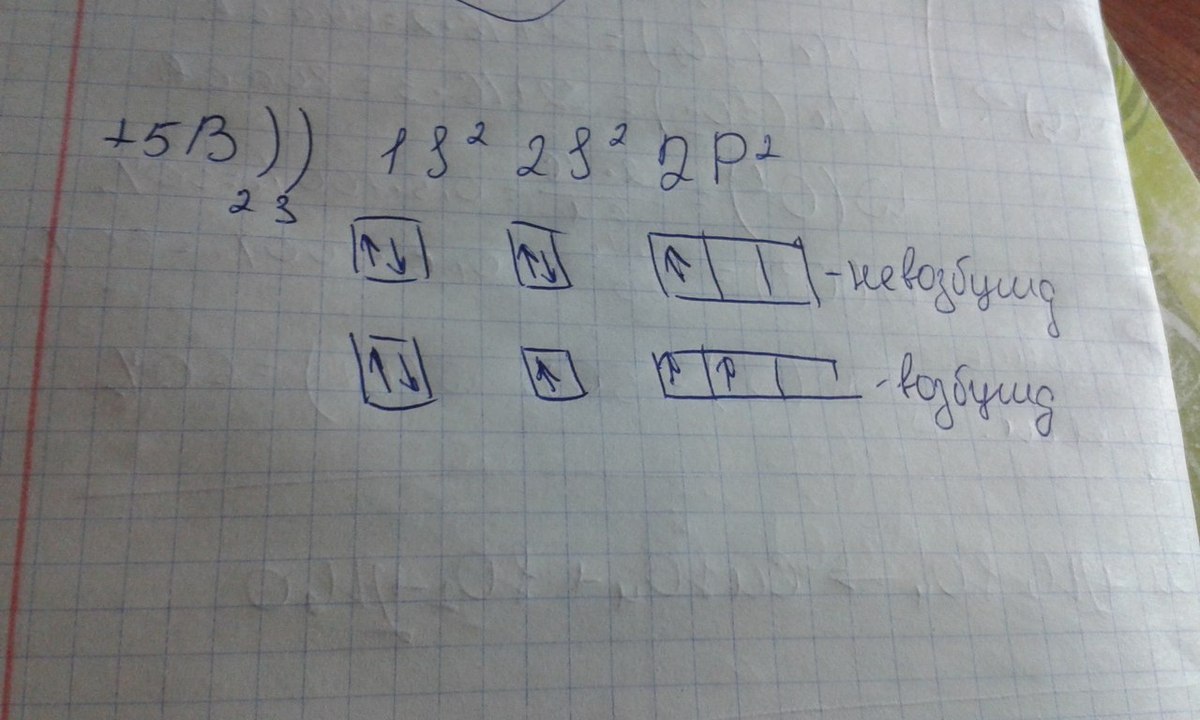 +5B)) 1S² 2S² 2P²
2 3
↑↓ ↑↓ ↑ -невозбужд
↑↓ ↑ ↑ ↑ -возбужд